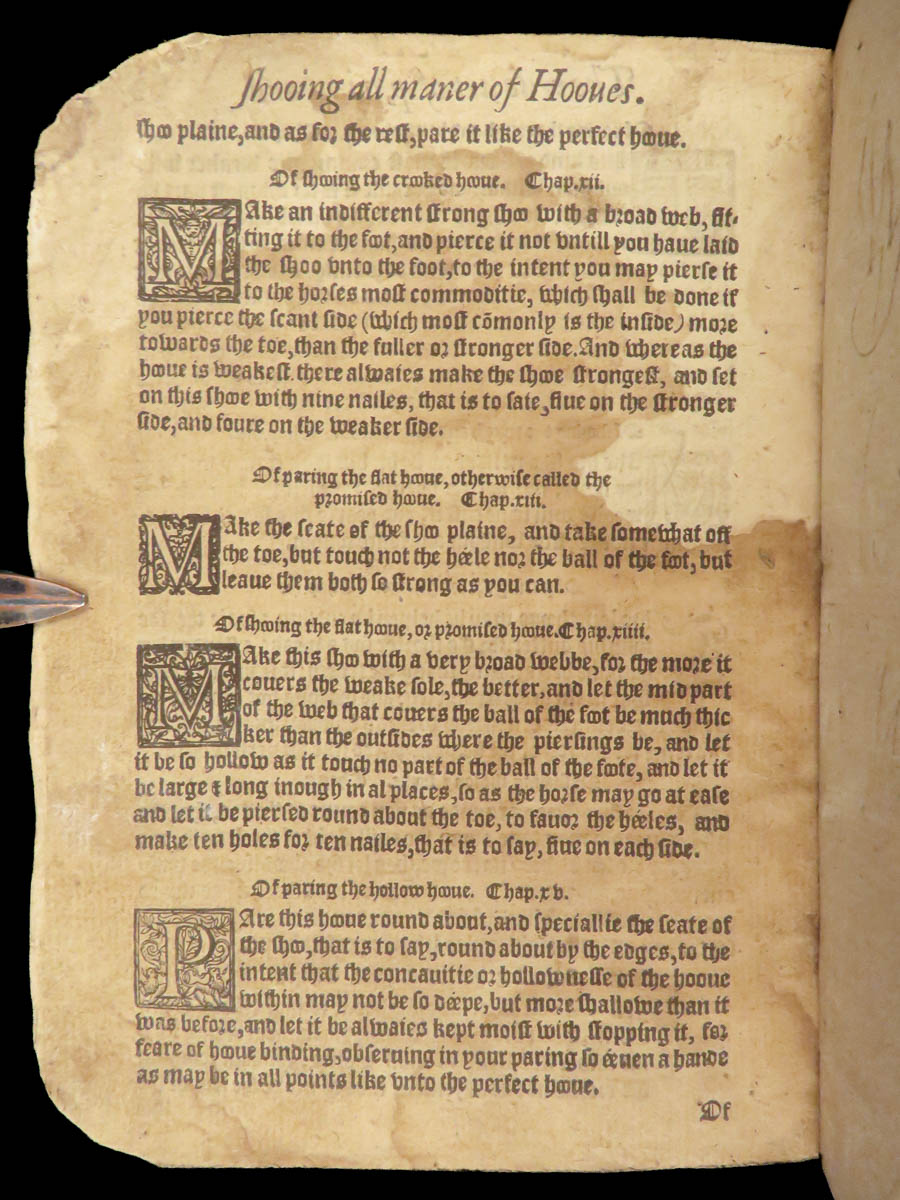 shooing all maner of Hooues.
shoo plaine,and as for the rest,pare it like the perfect hooue.
Of shooing the crooked hooue. Chap.xii.
MAke an indifferent strong shoo with a broad web, fit-
ting it to the foot,and pierce it not vntill you haue laid
the shoo vnto the foot,to the intent you may pierse it
to the horses most commoditie, which shall be done if
you pierce the scant side (which most cõmonly is the inside) more
towards the toe,than the fuller or stronger side.And whereas the
hooue is weakest.there alwaies make the shooe strongest, and set
on this shooe with nine nailes, that is to saie,fiue on the stronger
side,and foure on the weaker side.
Of paring the flat hooue, otherwise called the
promised hooue. Chap.xiii.
MAke the seate of the shoo plaine, and take somewhat off
the toe,but touch not the héele nor the ball of the foot, but
leaue them both so strong as you can.
Of shooing the flat hooue, or promised hooue.Chap.xiiii.
MAke this shoo with a very broad webbe,for the more it
couers the weake sole,the better,and let the mid part
of the web that couers the ball of the foot be much thic
ker than the outsides where the piersings be, and let
it be so hollow as it touch no part of the ball of the foote, and let it
be large & long inough in al places,so as the horse may go at ease
and let it be piersed round about the toe, to fauor the héeles, and
make ten holes for ten nailes,that is to say, fiue on each side.
Of paring the hollow hooue. Chap.xv.
PAre this hooue round about,and speciallie the seate of
the shoo,that is to say,round about by the edges,to the
intent that the concauitie or hollownesse of the hooue
within may not be so déepe,but more shallowe than it
was before,and let it be alwaies kept moist with stopping it, for
feare of hooue binding,obseruing in your paring so éeuen a hande
as may be in all points like vnto the perfect hooue.
Of